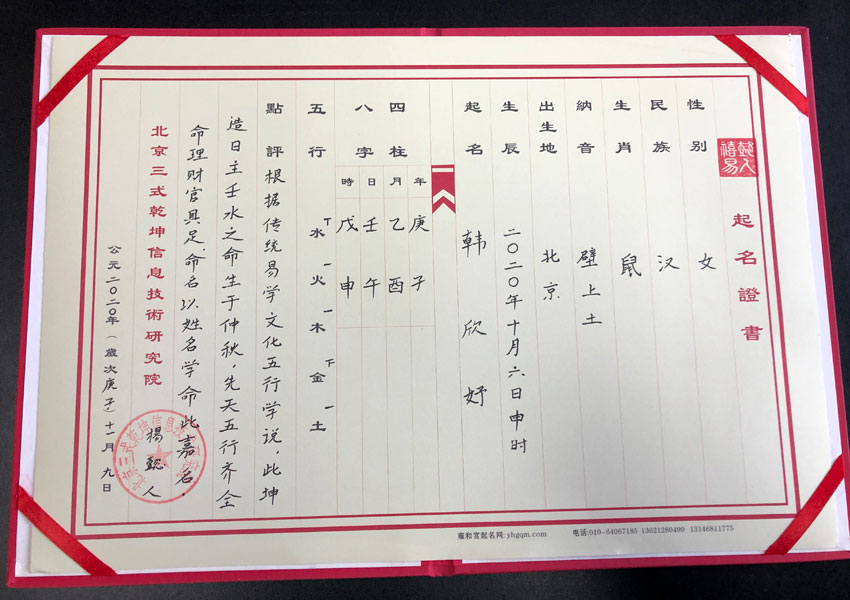 起名證書
性别 女
民族 汉
生肖 鼠
納音 壁上土
出生地 北京
生辰 二〇二〇年十月六日申时
起名 韩欣妤
四柱八字
年 庚子
月 乙酉
日 壬午
時 戊申
五行 水 火 木 金 土
點評 根据传统易学文化五行学说，此坤
造日主壬水之命生于仲秋，先天五行齐全
命理财官具足，命名以姓名学命此嘉名．
北京三式乾坤信息技術研究院
杨懿人
公元二〇二〇年（歲次庚子）十一月九日
雍和宫起名网：yhgqm.com 电话：010-64067185 13621280499 13146811775